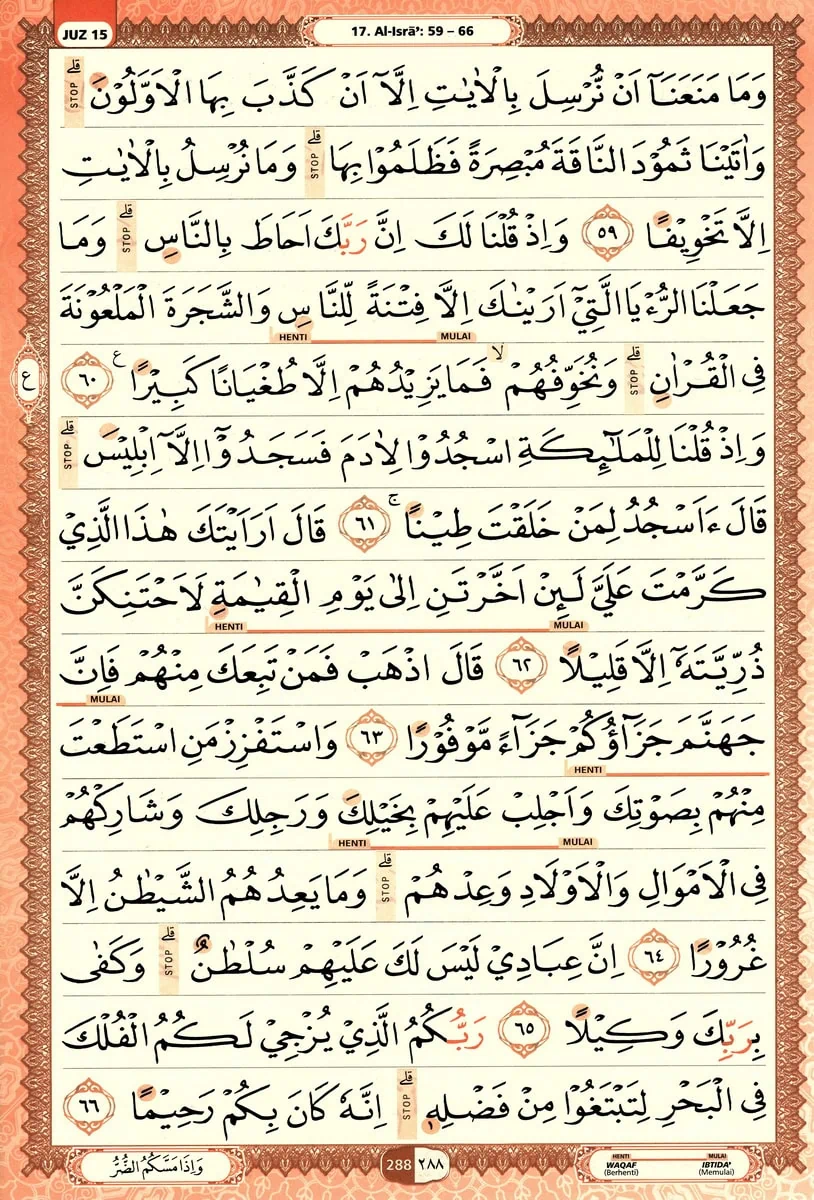 JUZ 15
17. Al-Isrā’: 59 – 66
وَمَا مَنَعَنَآ اَنْ نُّرْسِلَ بِالْاٰيٰتِ اِلَّآ اَنْ كَذَّبَ بِهَا الْاَوَّلُوْنَۗ STOP
وَاٰتَيْنَا ثَمُوْدَ النَّاقَةَ مُبْصِرَةً فَظَلَمُوْا بِهَاۗ STOP وَمَا نُرْسِلُ بِالْاٰيٰتِ
اِلَّا تَخْوِيْفًا ٥٩ وَاِذْ قُلْنَا لَكَ اِنَّ رَبَّكَ اَحَاطَ بِالنَّاسِۗ STOP وَمَا
جَعَلْنَا الرُّءْيَا الَّتِيْٓ اَرَيْنٰكَ اِلَّا فِتْنَةً لِّلنَّاسِ وَالشَّجَرَةَ الْمَلْعُوْنَةَ
HENTI MULAI
فِى الْقُرْاٰنِۗ STOP وَنُخَوِّفُهُمْۙ فَمَا يَزِيْدُهُمْ اِلَّا طُغْيَانًا كَبِيْرًا ࣖ ٦٠
ع
وَاِذْ قُلْنَا لِلْمَلٰۤىِٕكَةِ اسْجُدُوْا لِاٰدَمَ فَسَجَدُوْٓا اِلَّآ اِبْلِيْسَۗ STOP
قَالَ ءَاَسْجُدُ لِمَنْ خَلَقْتَ طِيْنًاۚ ٦١ قَالَ اَرَاَيْتَكَ هٰذَا الَّذِيْ
كَرَّمْتَ عَلَيَّ لَىِٕنْ اَخَّرْتَنِ اِلٰى يَوْمِ الْقِيٰمَةِ لَاَحْتَنِكَنَّ
HENTI MULAI
ذُرِّيَّتَهٗٓ اِلَّا قَلِيْلًا ٦٢ قَالَ اذْهَبْ فَمَنْ تَبِعَكَ مِنْهُمْ فَاِنَّ
MULAI
جَهَنَّمَ جَزَاۤؤُكُمْ جَزَاۤءً مَّوْفُوْرًا ٦٣ وَاسْتَفْزِزْ مَنِ اسْتَطَعْتَ
HENTI
مِنْهُمْ بِصَوْتِكَ وَاَجْلِبْ عَلَيْهِمْ بِخَيْلِكَ وَرَجِلِكَ وَشَارِكْهُمْ
HENTI MULAI
فِى الْاَمْوَالِ وَالْاَوْلَادِ وَعِدْهُمْۗ STOP وَمَا يَعِدُهُمُ الشَّيْطٰنُ اِلَّا
غُرُوْرًا ٦٤ اِنَّ عِبَادِيْ لَيْسَ لَكَ عَلَيْهِمْ سُلْطٰنٌۗ STOP وَكَفٰى
بِرَبِّكَ وَكِيْلًا ٦٥ رَبُّكُمُ الَّذِيْ يُزْجِيْ لَكُمُ الْفُلْكَ
فِى الْبَحْرِ لِتَبْتَغُوْا مِنْ فَضْلِهٖۗ STOP اِنَّهٗ كَانَ بِكُمْ رَحِيْمًا ٦٦
وَاِذَا مَسَّكُمُ الضُّرُّ
288 ٢٨٨
HENTI MULAI
WAQAF IBTIDA'
(Berhenti) (Memulai)